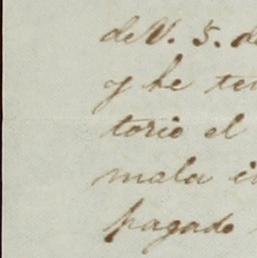 de V. S. de
y he te
torio el
mala i
pagado